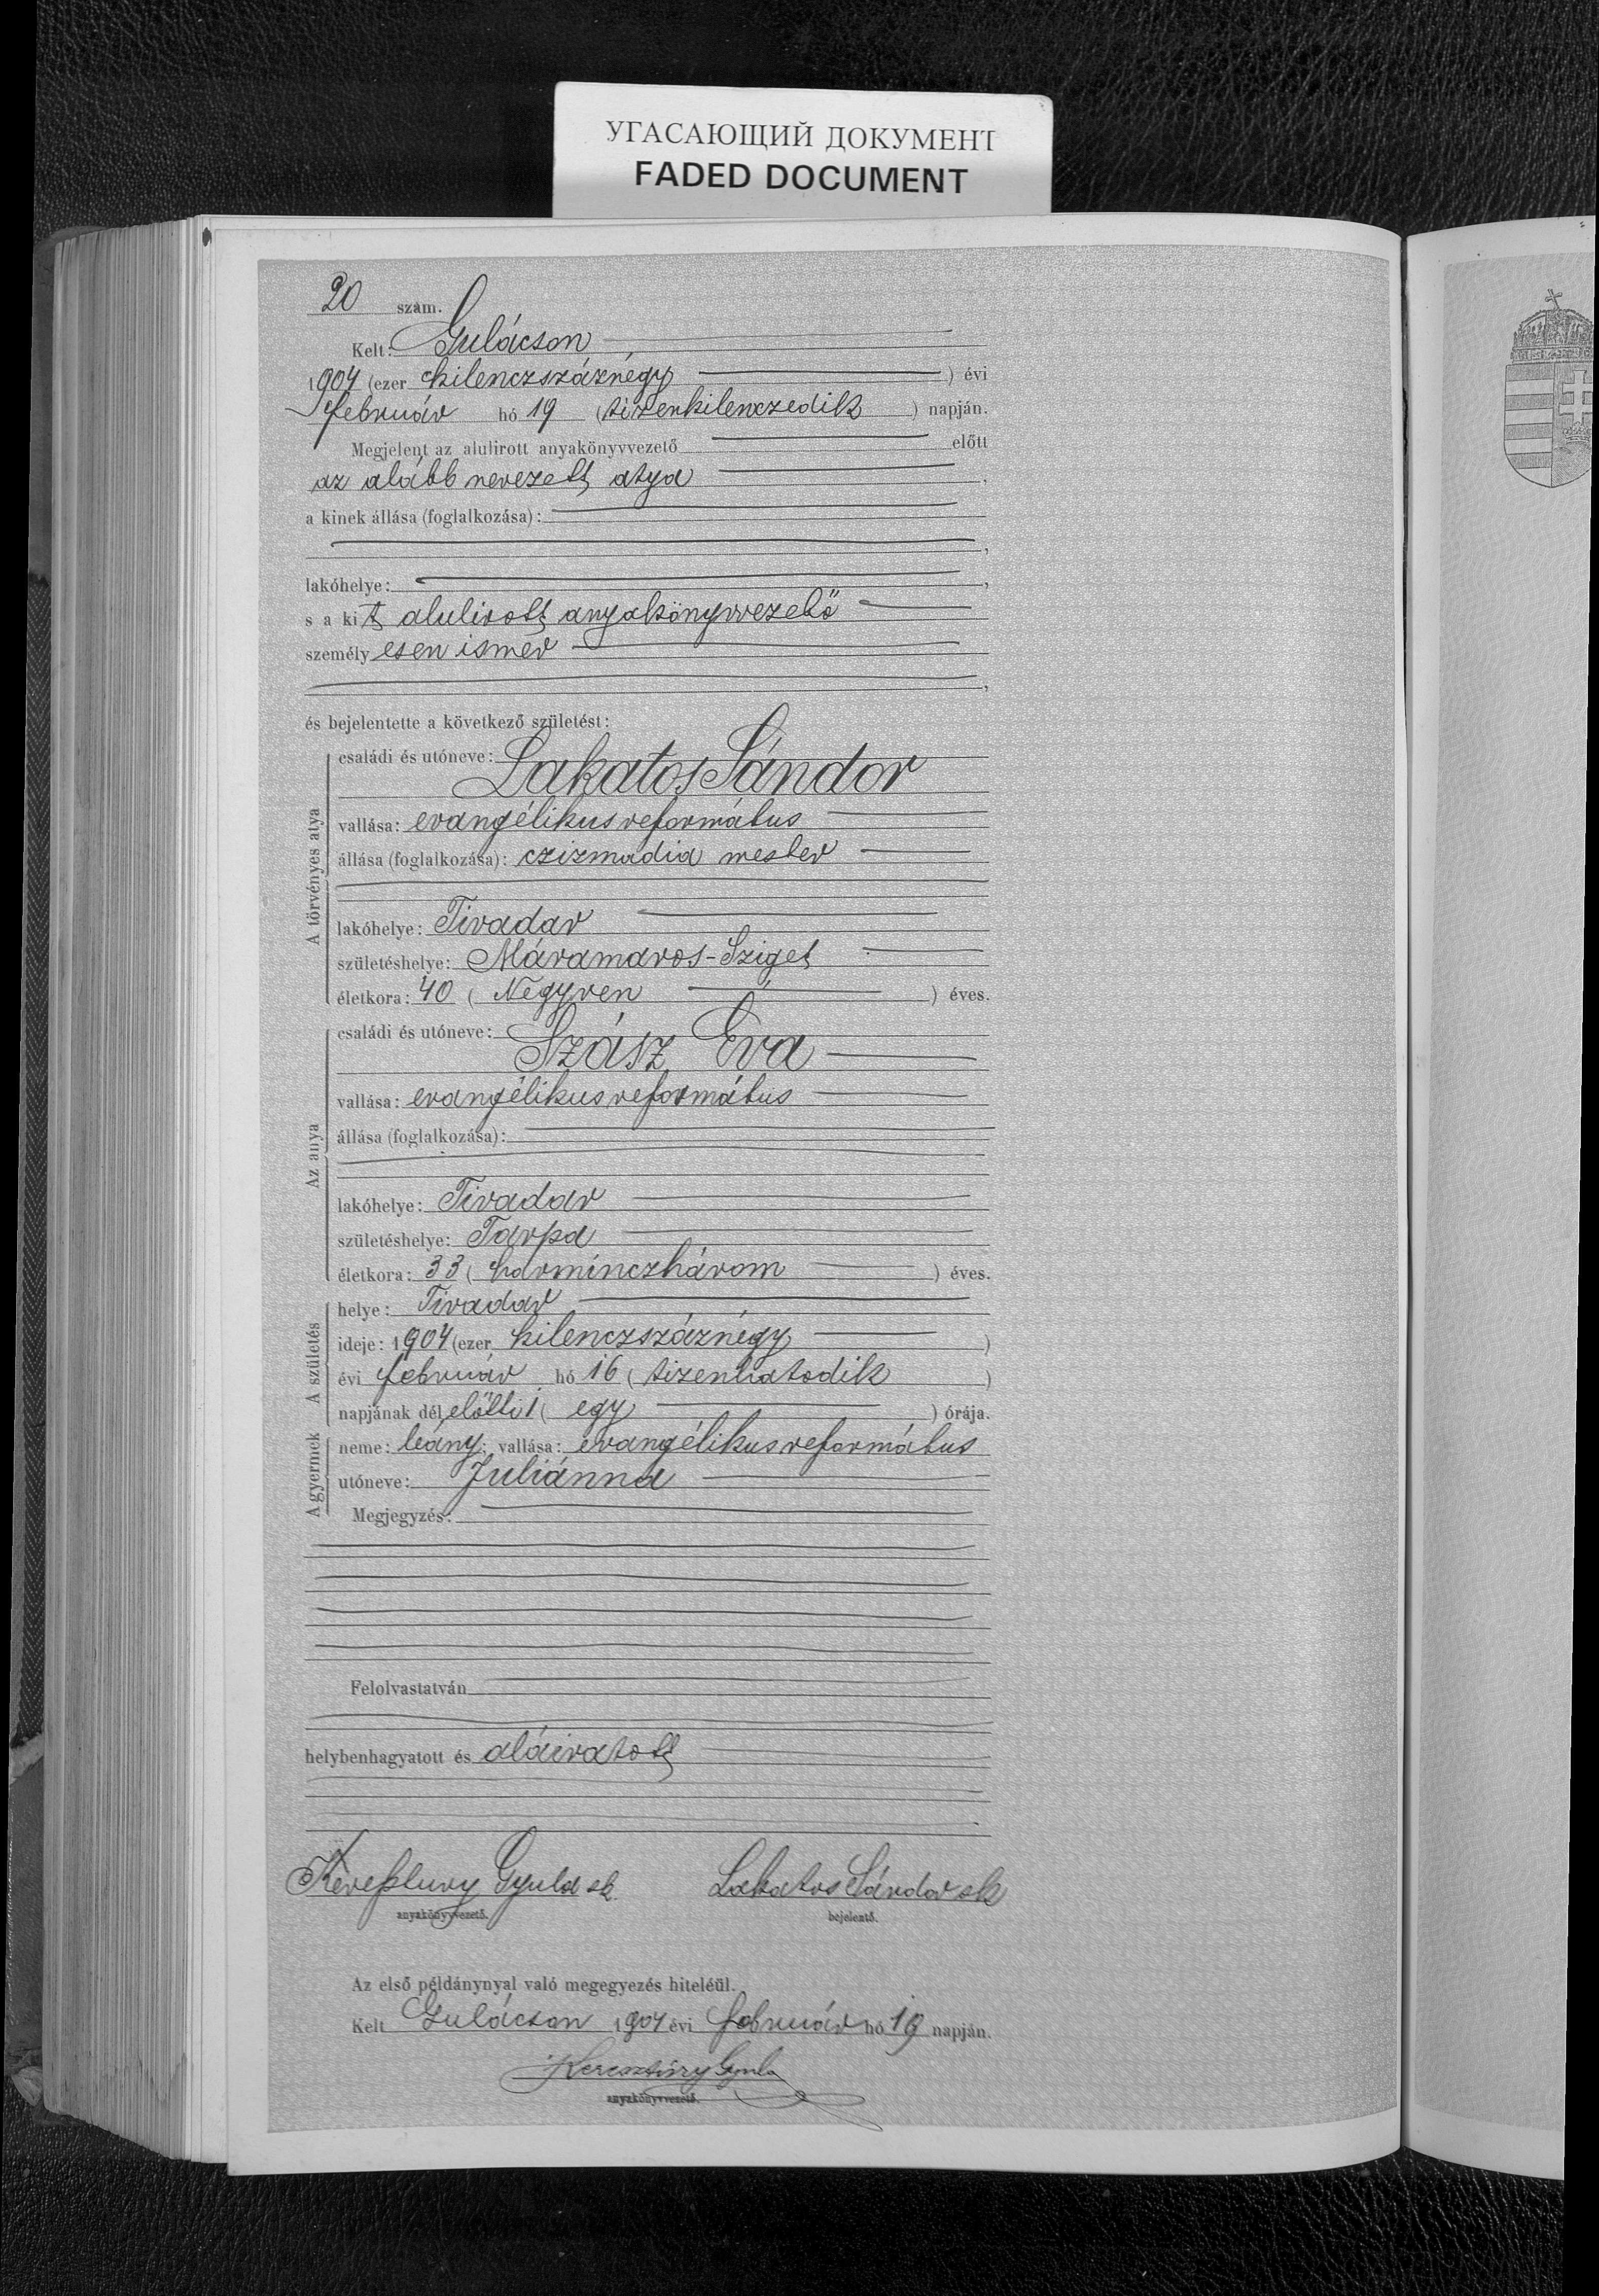 УГАСАЮЩИЙ ДОКУМЕНТ
FADED DOCUMENT
20 szám.
Kelt: Gulácson
1904 (ezer kilenczszáznégy) évi
február hó 19 (tizenkilenczedik) napján.
Megjelent az alulirott anyakönyvvezető előtt
az alább nevezett atya,
a kinek állása (foglalkozása):
,
lakóhelye: ,
s a kit alulirott anyakönyvvezető
személyesen ismer
,
és bejelentette a következő születést:
A törvényes atya
családi és utóneve:
Lakatos Sándor
vallása: evangélikus református
állása (foglalkozása): czizmadia mester
lakóhelye: Tivadar
születéshelye: Máramaros-Sziget
életkora: 40 (Negyven) éves.
Az anya
családi és utóneve:
Szász Éva
vallása: evangélikus református
állása (foglalkozása):
lakóhelye: Tivadar
születéshelye: Tarpa
életkora: 33 (harminczhárom) éves.
A születés
helye: Tivadar
ideje: 1904 (ezer kilenczszáznégy)
évi február hó 16 (tizenhatodik)
napjának dél előtti 1 (egy) órája.
A gyermek
neme: leány; vallása: evangélikus református
utóneve: Juliánna
Megjegyzés:
Felolvastatván
helybenhagyatott és aláiratott
Keresztury Gyula sk. Lakatos Sándor sk
anyakönyvvezető. bejelentő.
Az első példánynyal való megegyezés hiteléül.
Kelt Gulácson 1904 évi február hó 19 napján.
Keresztúry Gyula
anyakönyvvezető.